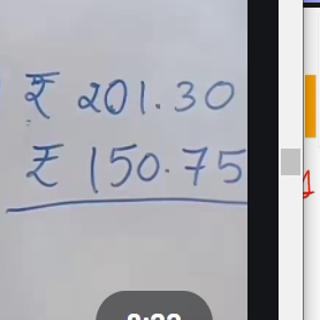 ₹ 201.30
₹ 150.75